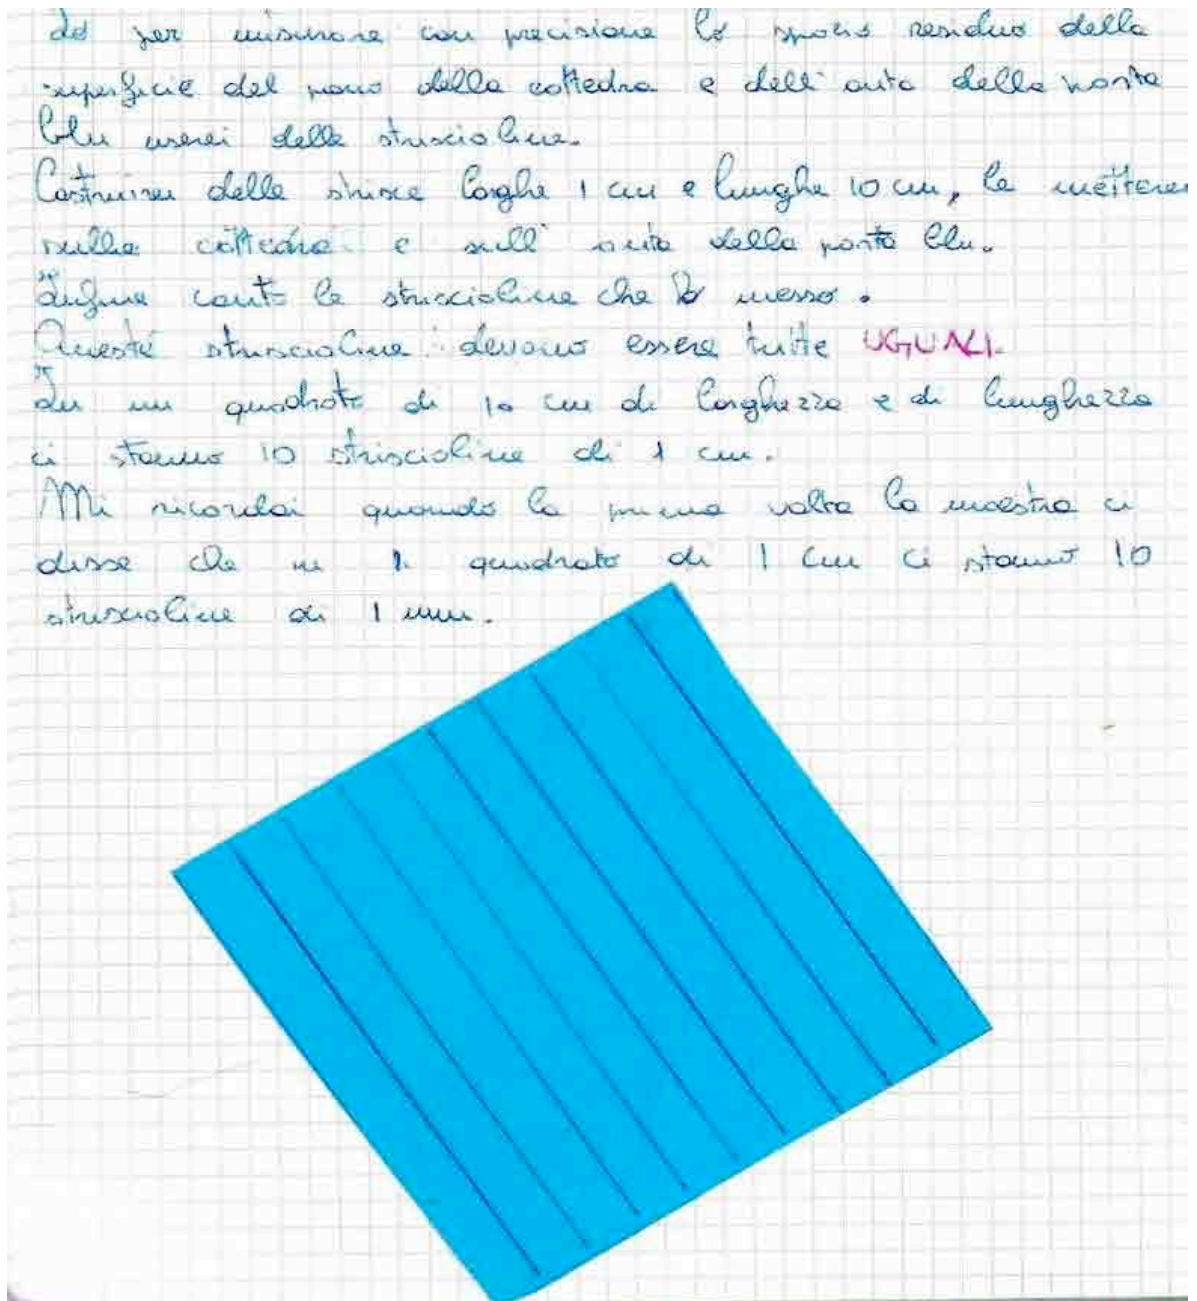 Io per misurare con precisione lo spazio residuo della
superficie del piano della cattedra e dell'anta della porta
blu userei delle striscioline.
Costruirei delle strisce larghe 1 cm e lunghe 10 cm, le metterei
sulla cattedra e sull'anta della porta blu.
Infine conto le striscioline che ho messo.
Queste striscioline devono essere tutte UGUALI.
In un quadrato di 10 cm di larghezza e di lunghezza
ci stanno 10 striscioline di 1 cm.
Mi ricordai quando la prima volta la maestra ci
disse che in 1 quadrato di 1 cm ci stanno 10
striscioline di 1 mm.